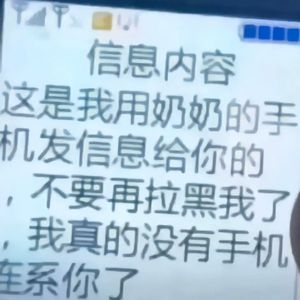 信息内容
这是我用奶奶的手
机发信息给你的
，不要再拉黑我了
，我真的没有手机
连系你了